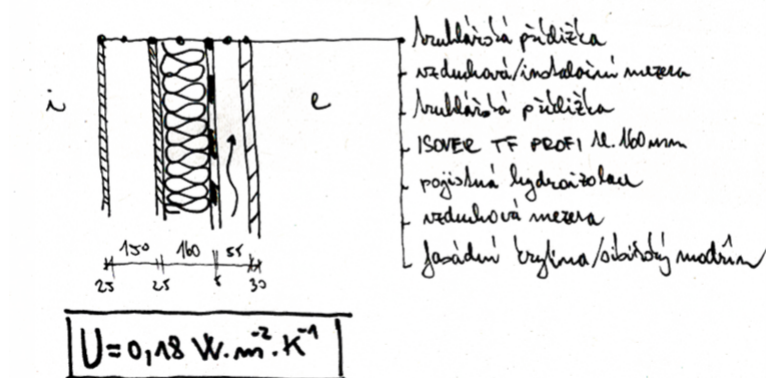 truhlářská předložka
vzduchová/instalační mezera
truhlářská předložka
i
e
ISOVER TF PROFI tl. 160mm
pojistná hydroizolace
vzduchová mezera
fasádní krytina/sibiřský modřín
150 160 55
25 25 5 30
U=0,18 W.m⁻².K⁻¹